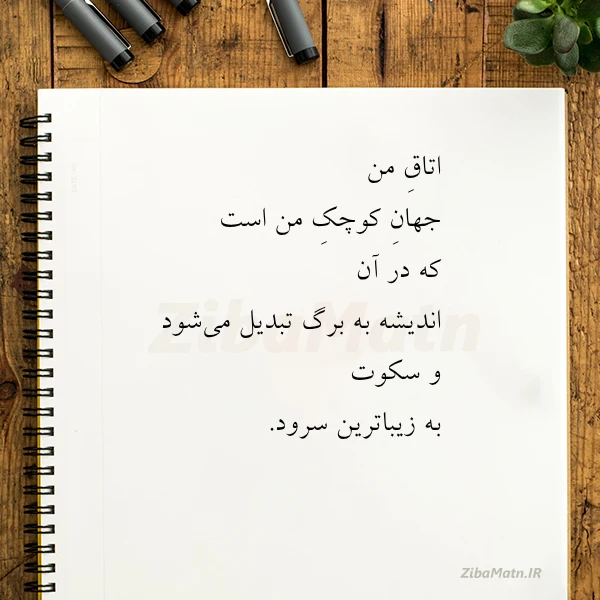 اتاقِ من
جهانِ کوچکِ من است
که در آن
اندیشه به برگ تبدیل می‌شود
و سکوت
به زیباترین سرود.
ZibaMatn
ZibaMatn.IR